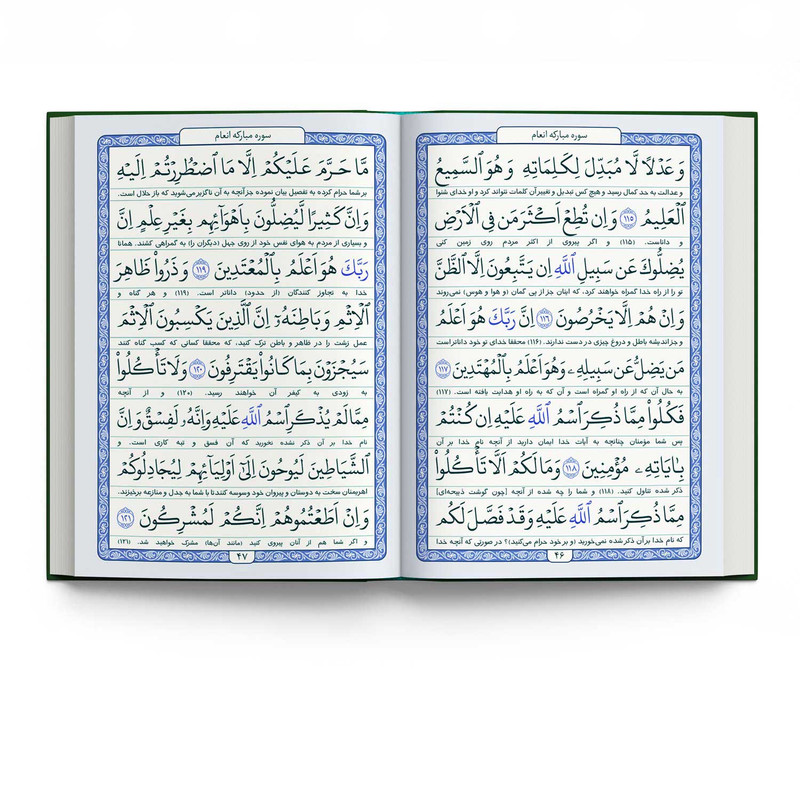 سوره مبارکه انعام
وَعَدْلًا لَّا مُبَدِّلَ لِكَلِمَاتِهِ وَهُوَ ٱلسَّمِيعُ
و عدالت به حد کمال رسید و هیچ کس تبدیل و تغییر آن کلمات نتواند کرد و او خدای شنوا
ٱلْعَلِيمُ ﴿۱۱۵﴾ وَإِن تُطِعْ أَكْثَرَ مَن فِي ٱلْأَرْضِ
و داناست. (۱۱۵) و اگر پیروی از اکثر مردم روی زمین کنی
يُضِلُّوكَ عَن سَبِيلِ ٱللَّهِ إِن يَتَّبِعُونَ إِلَّا ٱلظَّنَّ
تو را از راه خدا گمراه خواهند کرد، که اینان جز از پی گمان (و هوا و هوس) نمی‌روند
وَإِنْ هُمْ إِلَّا يَخْرُصُونَ ﴿۱۱۶﴾ إِنَّ رَبَّكَ هُوَ أَعْلَمُ
و جز اندیشه باطل و دروغ چیزی در دست ندارند. (۱۱۶) محققا خدای تو خود داناتر است
مَن يَضِلُّ عَن سَبِيلِهِ وَهُوَ أَعْلَمُ بِٱلْمُهْتَدِينَ ﴿۱۱۷﴾
به حال آن که از راه او گمراه است و آن که به راه او هدایت یافته است. (۱۱۷)
فَكُلُوا مِمَّا ذُكِرَ ٱسْمُ ٱللَّهِ عَلَيْهِ إِن كُنْتُمْ
پس شما مؤمنان چنانچه به آیات خدا ایمان دارید از آنچه نام خدا بر آن
بِـَٔايَاتِهِ مُؤْمِنِينَ ﴿۱۱۸﴾ وَمَا لَكُمْ أَلَّا تَأْكُلُوا
ذکر شده تناول کنید. (۱۱۸) و شما را چه شده از آنچه [چون گوشت ذبیحه‌ای]
مِمَّا ذُكِرَ ٱسْمُ ٱللَّهِ عَلَيْهِ وَقَدْ فَصَّلَ لَكُم
که نام خدا بر آن ذکر شده نمی‌خورید (و بر خود حرام می‌کنید)؟ در صورتی که آنچه خدا
۴۶
سوره مبارکه انعام
مَّا حَرَّمَ عَلَيْكُمْ إِلَّا مَا ٱضْطُرِرْتُمْ إِلَيْهِ
بر شما حرام کرده به تفصیل بیان نموده جز آنچه به آن ناگزیر می‌شوید که باز حلال است.
وَإِنَّ كَثِيرًا لَّيُضِلُّونَ بِأَهْوَائِهِم بِغَيْرِ عِلْمٍ إِنَّ
و بسیاری از مردم به هوای نفس خود از روی جهل (دیگران را) به گمراهی کشند. همانا
رَبَّكَ هُوَ أَعْلَمُ بِٱلْمُعْتَدِينَ ﴿۱۱۹﴾ وَذَرُوا ظَاهِرَ
خدا به تجاوز کنندگان (از حدود) داناتر است. (۱۱۹) و هر گناه و
ٱلْإِثْمِ وَبَاطِنَهُ إِنَّ ٱلَّذِينَ يَكْسِبُونَ ٱلْإِثْمَ
عمل زشت را در ظاهر و باطن ترک کنید، که محققا کسانی که کسب گناه کنند
سَيُجْزَوْنَ بِمَا كَانُوا يَقْتَرِفُونَ ﴿۱۲۰﴾ وَلَا تَأْكُلُوا
به زودی به کیفر آن خواهند رسید. (۱۲۰) و از آنچه
مِمَّا لَمْ يُذْكَرِ ٱسْمُ ٱللَّهِ عَلَيْهِ وَإِنَّهُ لَفِسْقٌ وَإِنَّ
نام خدا بر آن ذکر نشده نخورید که آن فسق و تبه کاری است. و
ٱلشَّيَاطِينَ لَيُوحُونَ إِلَىٰ أَوْلِيَائِهِمْ لِيُجَادِلُوكُمْ
اهریمنان سخت به دوستان و پیروان خود وسوسه کنند تا با شما به جدل و منازعه برخیزند.
وَإِنْ أَطَعْتُمُوهُمْ إِنَّكُمْ لَمُشْرِكُونَ ﴿۱۲۱﴾
و اگر شما هم از آنان پیروی کنید (مانند آن‌ها) مشرک خواهید شد. (۱۲۱)
۴۷